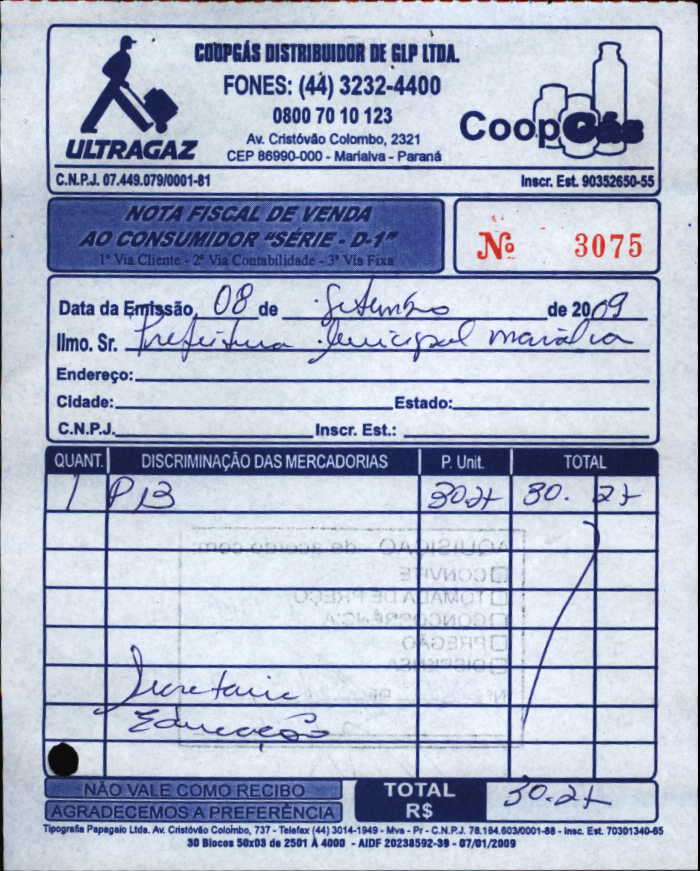 COOPGÁS DISTRIBUIDOR DE GLP LTDA.
FONES: (44) 3232-4400
0800 70 10 123
Av. Cristóvão Colombo, 2321
CEP 86990-000 - Marialva - Paraná
ULTRAGAZ
CoopGás
C.N.P.J. 07.449.079/0001-81 Inscr. Est. 90352650-55
NOTA FISCAL DE VENDA
AO CONSUMIDOR "SÉRIE - D-1"
1ª Via Cliente - 2ª Via Contabilidade - 3ª Via Fixa
Nº 3075
Data da Emissão 08 de Setembro de 2009
Ilmo. Sr. Prefeitura Municipal Marialva
Endereço:
Cidade: Estado:
C.N.P.J. Inscr. Est.:
QUANT. DISCRIMINAÇÃO DAS MERCADORIAS P. Unit. TOTAL
1 P13 30.27 30. 27
AQUISIÇÃO - de acordo com:
CONVITE
TOMADA DE PREÇO
CONCORRÊNCIA
PREGÃO
DISPENSA
Nº
Secretaria
Educação
NÃO VALE COMO RECIBO
AGRADECEMOS A PREFERÊNCIA
TOTAL R$ 30.27
Tipografia Papagaio Ltda. Av. Cristóvão Colombo, 737 - Telefax (44) 3014-1949 - Mva - Pr - C.N.P.J. 78.184.603/0001-88 - Insc. Est. 70301340-65
30 Blocos 50x03 de 2501 À 4000 - AIDF 20238592-39 - 07/01/2009